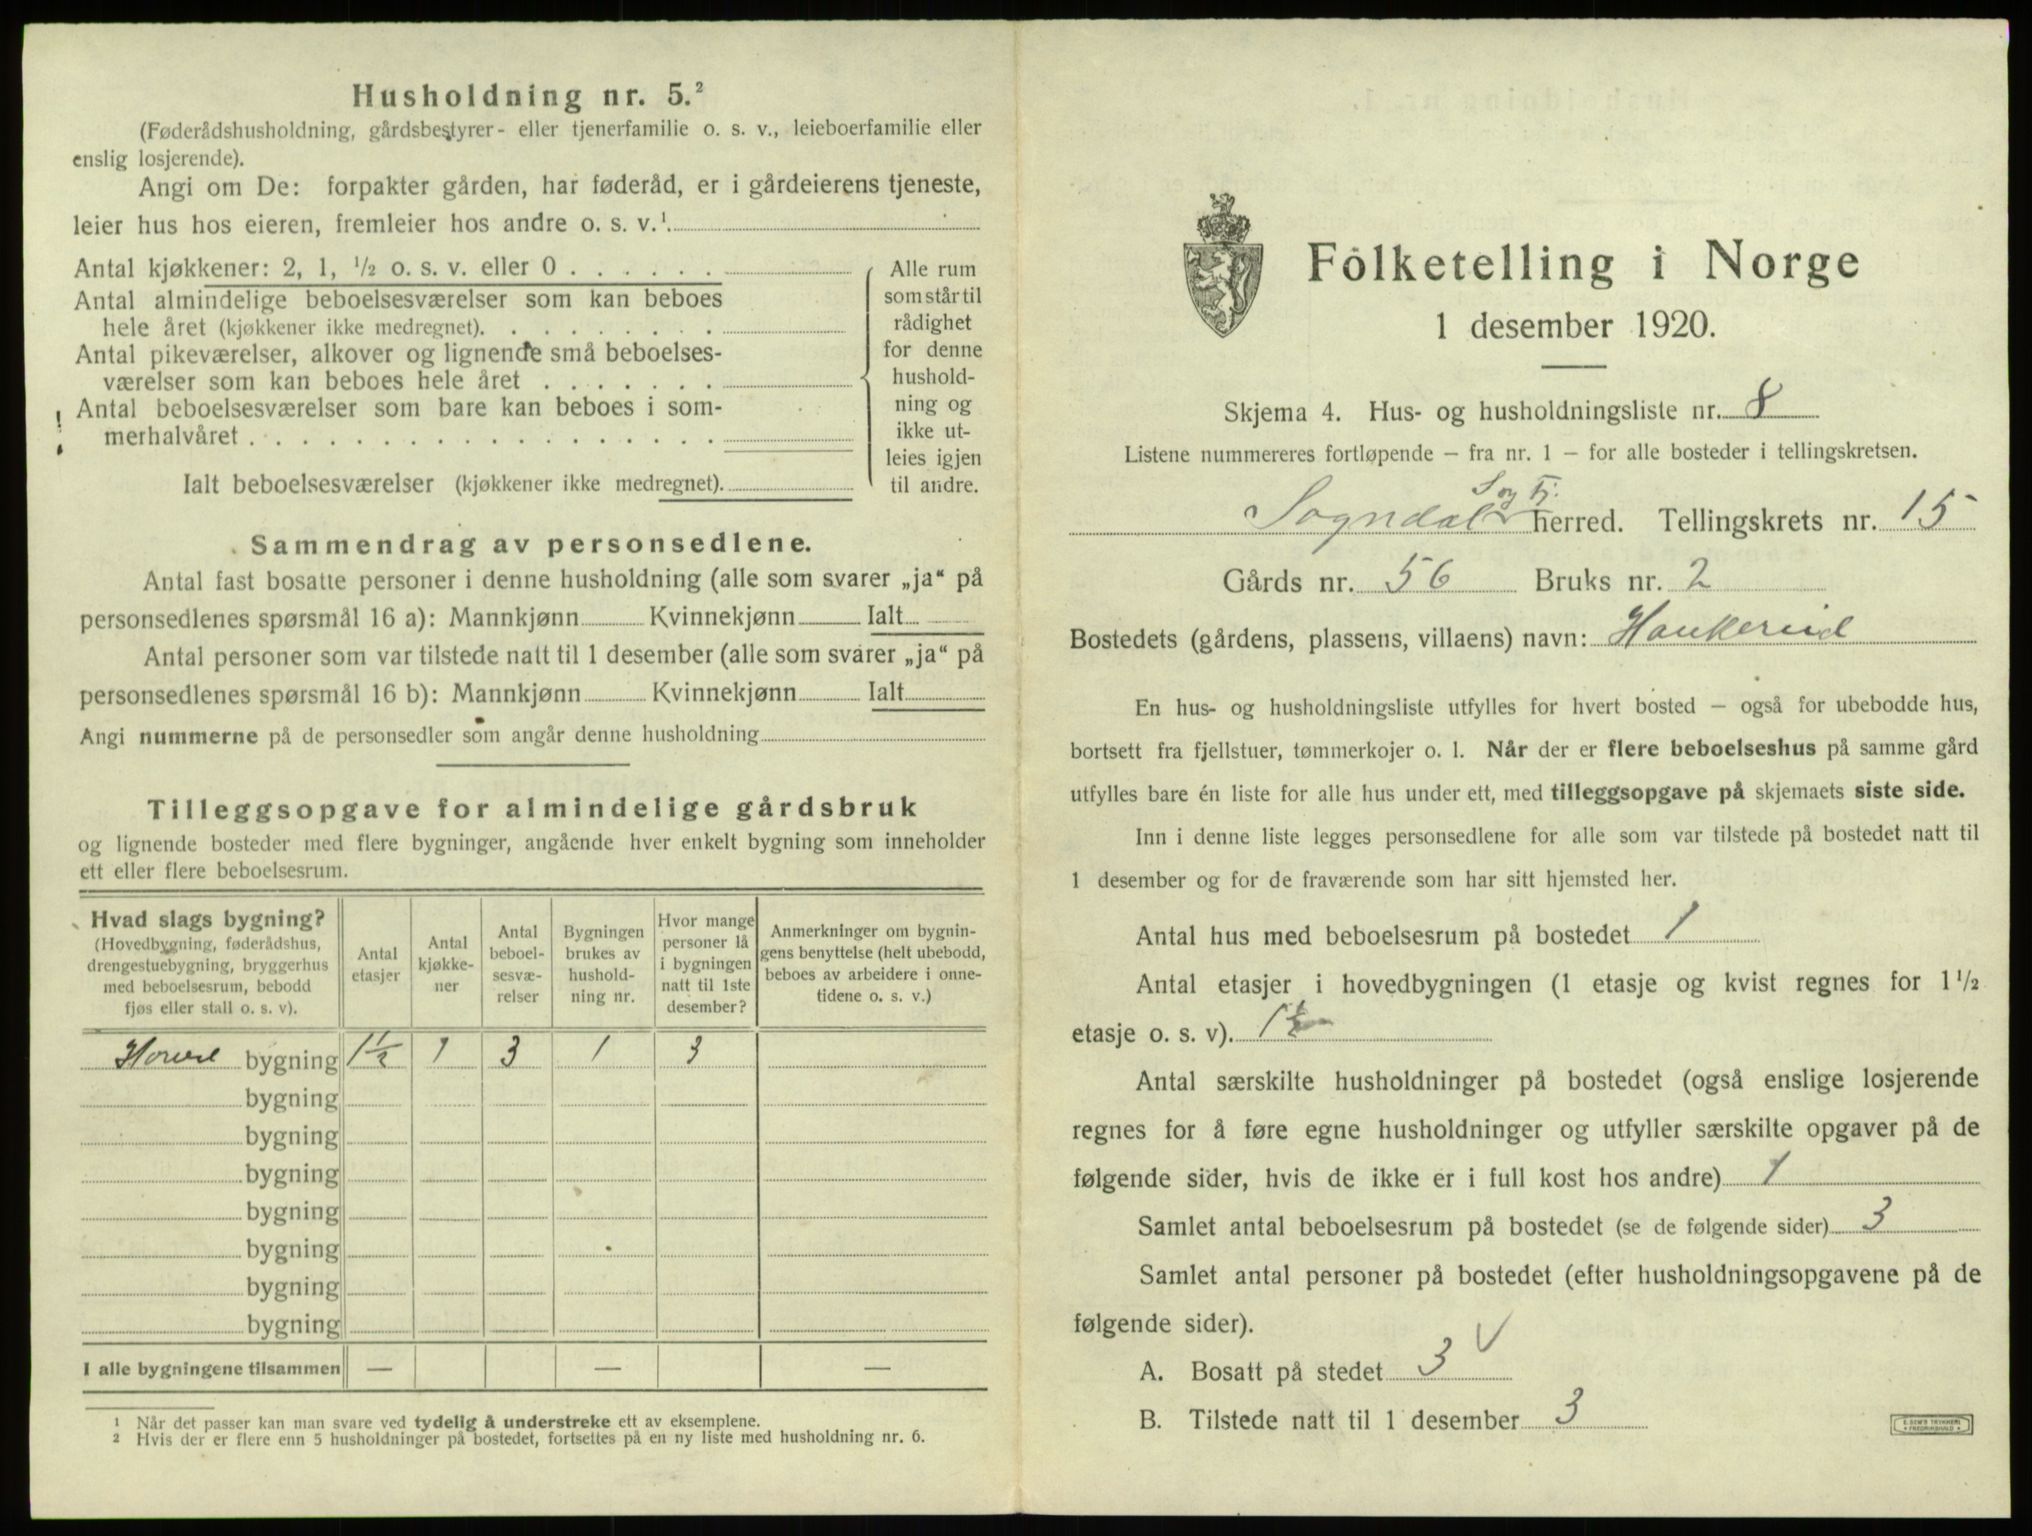 Husholdning nr. 5.²
(Føderådshusholdning, gårdsbestyrer- eller tjenerfamilie o. s. v., leieboerfamilie eller
enslig losjerende).
Angi om De: forpakter gården, har føderåd, er i gårdeierens tjeneste,
leier hus hos eieren, fremleier hos andre o. s. v.¹
Antal kjøkkener: 2, 1, ½ o. s. v. eller 0 . . . . . .
Antal almindelige beboelsesværelser som kan beboes
hele året (kjøkkener ikke medregnet). . . . . . . . .
Antal pikeværelser, alkover og lignende små beboelses-
værelser som kan beboes hele året . . . . . . .
Antal beboelsesværelser som bare kan beboes i som-
merhalvåret . . . . . . . . . . . . . . . . . .
Ialt beboelsesværelser (kjøkkener ikke medregnet).
Alle rum
som står til
rådighet
for denne
hushold-
ning og
ikke ut-
leies igjen
til andre.
Sammendrag av personsedlene.
Antal fast bosatte personer i denne husholdning (alle som svarer „ja“ på
personsedlenes spørsmål 16 a): Mannkjønn Kvinnekjønn Ialt
Antal personer som var tilstede natt til 1 desember (alle som svarer „ja“ på
personsedlenes spørsmål 16 b): Mannkjønn Kvinnekjønn Ialt
Angi nummerne på de personsedler som angår denne husholdning
Tilleggsopgave for almindelige gårdsbruk
og lignende bosteder med flere bygninger, angående hver enkelt bygning som inneholder
ett eller flere beboelsesrum.
Hvad slags bygning?
(Hovedbygning, føderådshus,
drengestuebygning, bryggerhus
med beboelsesrum, bebodd
fjøs eller stall o. s. v).
Antal
etasjer
Antal
kjøkke-
ner
Antal
beboel-
sesvæ-
relser
Bygningen
brukes av
hushold-
ning nr.
Hvor mange
personer lå
i bygningen
natt til 1ste
desember?
Anmerkninger om bygnin-
gens benyttelse (helt ubebodd,
beboes av arbeidere i onne-
tidene o. s. v.)
Hoved bygning 1½ 1 3 1 3
bygning
bygning
bygning
bygning
bygning
bygning
bygning
I alle bygningene tilsammen — — —
¹ Når det passer kan man svare ved tydelig å understreke ett av eksemplene.
² Hvis der er flere enn 5 husholdninger på bostedet, fortsettes på en ny liste med husholdning nr. 6.
Folketelling i Norge
1 desember 1920.
Skjema 4. Hus- og husholdningsliste nr. 8
Listene nummereres fortløpende – fra nr. 1 – for alle bosteder i tellingskretsen.
Sogn Fj.
Sogndal herred. Tellingskrets nr. 15
Gårds nr. 56 Bruks nr. 2
Bostedets (gårdens, plassens, villaens) navn: Haukerud
En hus- og husholdningsliste utfylles for hvert bosted – også for ubebodde hus,
bortsett fra fjellstuer, tømmerkojer o. l. Når der er flere beboelseshus på samme gård
utfylles bare én liste for alle hus under ett, med tilleggsopgave på skjemaets siste side.
Inn i denne liste legges personsedlene for alle som var tilstede på bostedet natt til
1 desember og for de fraværende som har sitt hjemsted her.
Antal hus med beboelsesrum på bostedet 1
Antal etasjer i hovedbygningen (1 etasje og kvist regnes for 1½
etasje o. s. v). 1½
Antal særskilte husholdninger på bostedet (også enslige losjerende
regnes for å føre egne husholdninger og utfyller særskilte opgaver på de
følgende sider, hvis de ikke er i full kost hos andre) 1
Samlet antal beboelsesrum på bostedet (se de følgende sider) 3
Samlet antal personer på bostedet (efter husholdningsopgavene på de
følgende sider).
A. Bosatt på stedet 3 V
B. Tilstede natt til 1 desember 3